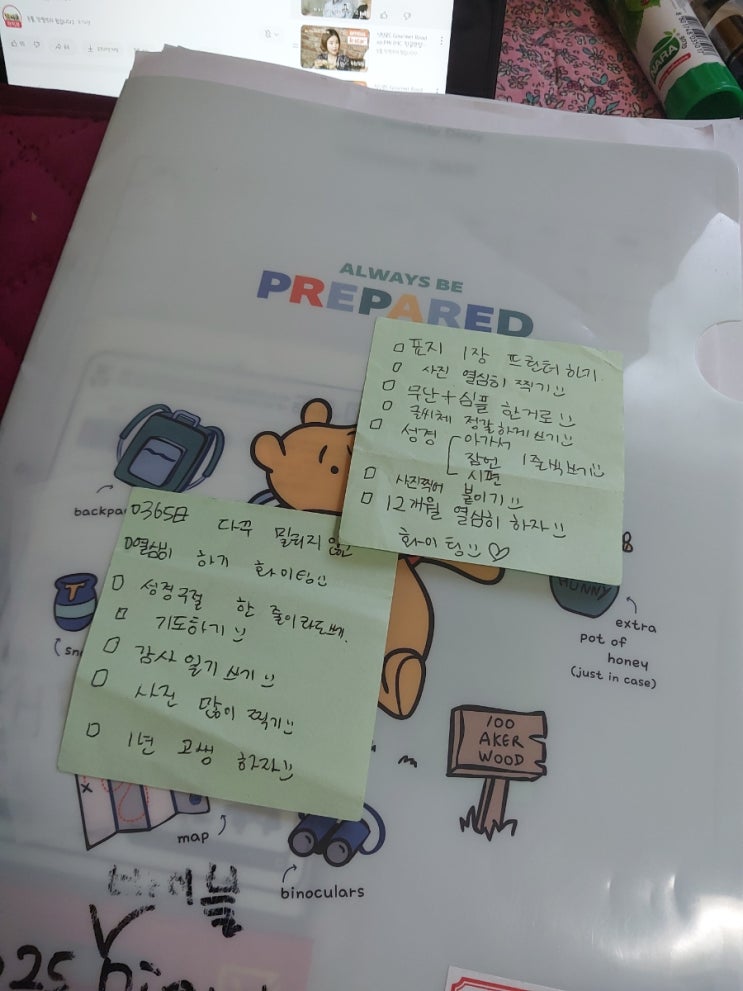 ALWAYS BE
PREPARED
□ 표지 1장 프린터 하기.
□ 사진 열심히 찍기
□ 무난+심플 한거로
□ 글씨체 정갈하게 쓰기
□ 성경 아가서
잠언 1줄씩쓰기
시편
□ 사진찍어 붙이기
□ 12개월 열심히 하자
화이팅♡
□365日 다꾸 밀리지 않고
□열심히 하기 화이팅
□ 성경구절 한 줄이라도쓰기.
□ 기도하기
□ 감사 일기쓰기
□ 사진 많이 찍기
□ 1년 고생 하자
HUNNY
extra
pot of
honey
(just in case)
100
AKER
WOOD
map
binoculars